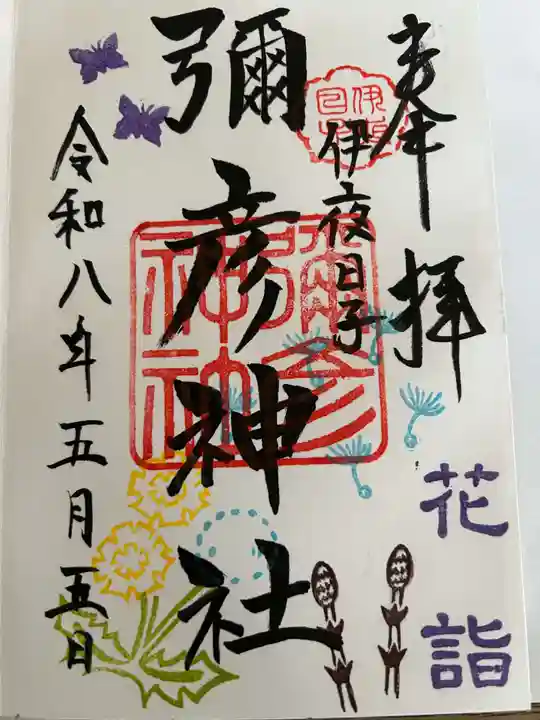 奉拝
花詣
伊夜日子
彌彦神社
令和八年五月五日
彌彦
神社